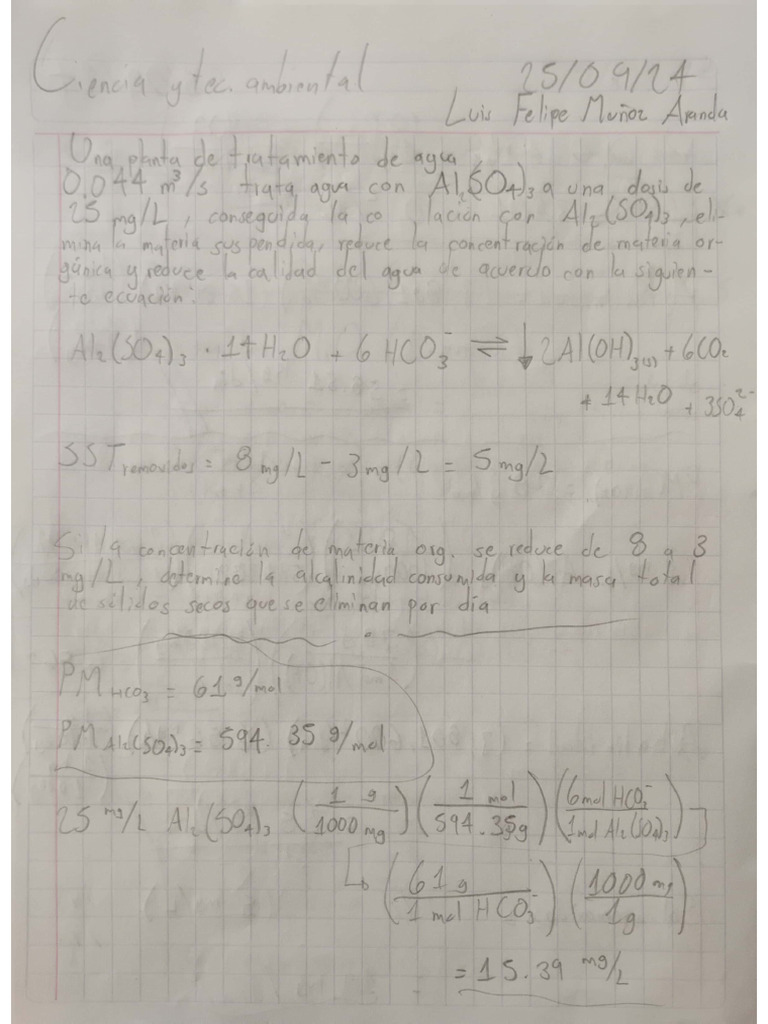 Ciencia y tec. ambiental
25/09/24
Luis Felipe Muñoz Aranda
Una planta de tratamiento de agua
0.044 m³/s trata agua con Al₂(SO₄)₃ a una dosis de
25 mg/L, conseguida la co lación con Al₂(SO₄)₃, eli-
mina la materia suspendida, reduce la concentración de materia or-
gánica y reduce la calidad del agua de acuerdo con la siguien-
te ecuación:
Al₂(SO₄)₃ · 14H₂O + 6 HCO₃⁻ ⇌ ↓ 2Al(OH)₃(s) + 6CO₂
+ 14H₂O + 3SO₄²⁻
SST removidos = 8 mg/L - 3 mg/L = 5 mg/L
Si la concentración de materia org. se reduce de 8 a 3
mg/L, determine la alcalinidad consumida y la masa total
de sólidos secos que se eliminan por día
PM HCO₃ = 61 g/mol
PM Al₂(SO₄)₃ = 594.35 g/mol
25 mg/L Al₂(SO₄)₃ (1 g / 1000 mg) (1 mol / 594.35g) (6 mol HCO₃⁻ / 1 mol Al₂(SO₄)₃)
(61 g / 1 mol HCO₃⁻) (1000 mg / 1g)
= 15.39 mg/L